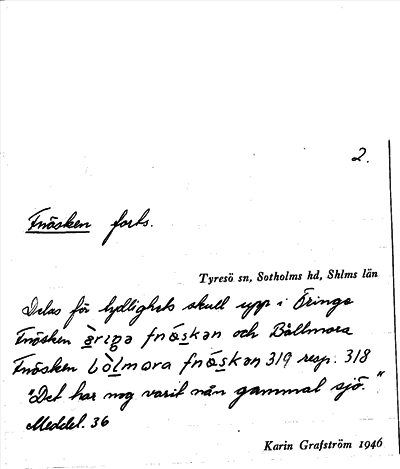 2.
Fnösken forts.
Tyresö sn, Sotholms hd, Shlms län
Delas för tydlighets skull upp i Öringe
Fnösken ὰ̱riŋə fnǿs̱kən och Bållmora
Fnösken bòḻmora fnǿs̱kən 319 resp. 318
"Det har nog varit nån gammal sjö."
Meddel. 36
Karin Grafström 1946